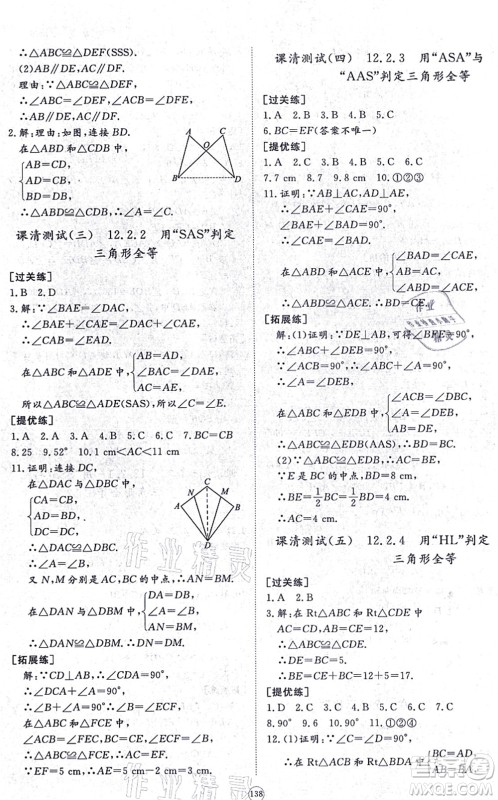 ∴△ABC≌△DEF(SSS).
(2)AB∥DE,AC∥DF.
理由:∵△ABC≌△DEF,
∴∠ABC=∠DEF,∠ACB=∠DFE,
∴AB∥DE,AC∥DF.
2.解:理由:如图,连接BD.
在△ABD和△CDB中,
AB=CD,
AD=CB,
BD=DB,
∴△ABD≌△CDB(SSS),
∴∠A=∠C.
A
C
O
B
D
课清测试(三) 12.2.2 用“SAS”判定
三角形全等
[过关练]
1.B 2.D
3.解:∵∠BAE=∠DAC,
∴∠BAE+∠CAE=∠DAC+∠CAE,
∴∠CAB=∠EAD.
在△ABC和△ADE中,
AB=AD,
∠CAB=∠EAD,
AC=AE,
所以△ABC≌△ADE(SAS),所以∠C=∠E.
[提优练]
1.A 2.A 3.A 4.A 5.D 6.C 7.BC=CB
8.25 9.52° 10.1 cm<AC<11 cm
11.证明:连接DC,
在△ACD与△BCD中,
CA=CB,
AD=BD,
CD=CD,
∴△ACD≌△BCD,
∴∠A=∠B.
C
N
M
A
B
D
又N,M分别是AC,BC的中点,∴AN=BM.
在△DAN与△DBM中,
DA=DB,
∠A=∠B,
AN=BM,
∴△DAN≌△DBM,∴DN=DM.
[拓展练]
解:∵CD⊥AB,∴∠ADC=90°,
∴∠DCA+∠A=90°.
∵∠ACB=90°,∴∠B+∠A=90°,
∴∠DCA=∠B.∵∠DCA=∠ECF,
∴∠ECF=∠B.
在△ABC和△FCE中,
∠ACB=∠FEC=90°,BC=CE,∠B=∠ECF,
∴△ABC≌△FCE,∴AC=EF.
∵EF=5 cm,∴AC=EF=5 cm.
课清测试(四) 12.2.3 用“ASA”与
“AAS”判定三角形全等
[过关练]
1.A 2.B 3.B 4.B 5.C
6.BC=EF(答案不唯一)
[提优练]
1.A 2.C 3.C 4.C 5.A 6.C
7.7 cm 8.7 9.8 cm 10.①②③
11.证明:∵AB⊥AC,AD⊥AE,
∴∠BAE+∠CAE=90°,
∠BAE+∠BAD=90°,
∴∠CAE=∠BAD.
在△ABD和△ACE中,
∠BAD=∠CAE,
AB=AC,
∠ABD=∠ACE,
∴△ABD≌△ACE,∴BD=CE.
[拓展练]
解:(1)证明:∵DE⊥AB,可得∠BFE=90°,
∴∠ABC+∠DEB=90°.
∵∠ACB=90°,∴∠ABC+∠A=90°,
∴∠A=∠DEB.
在△ABC和△EDB中,
∠ACB=∠DBC,
∠A=∠DEB,
AB=DE,
∴△ABC≌△EDB(AAS),∴BD=BC.
(2)∵△ABC≌△EDB,∴AC=BE.
∵E是BC的中点,BD=8 cm,
∴BE=1/2BC=1/2BD=4 cm.
∴AC=BE=4 cm.
课清测试(五) 12.2.4 用“HL”判定
三角形全等
[过关练]
1.A 2.B
3.解:在Rt△ABC和Rt△CDE中,
AC=CE,BC=DE,
∴Rt△ABC≌Rt△CDE,
∴∠ACB=∠E.
[提优练]
1.D 2.C 3.D 4.C 5.C 6.C 7.C
8.90° 9.90° 10.①②④
11.解:(1)证明:∵∠C=∠D=90°,
∴在Rt△ACB和Rt△BDA中,
BC=AD,
AB=BA,
138
作业精灵